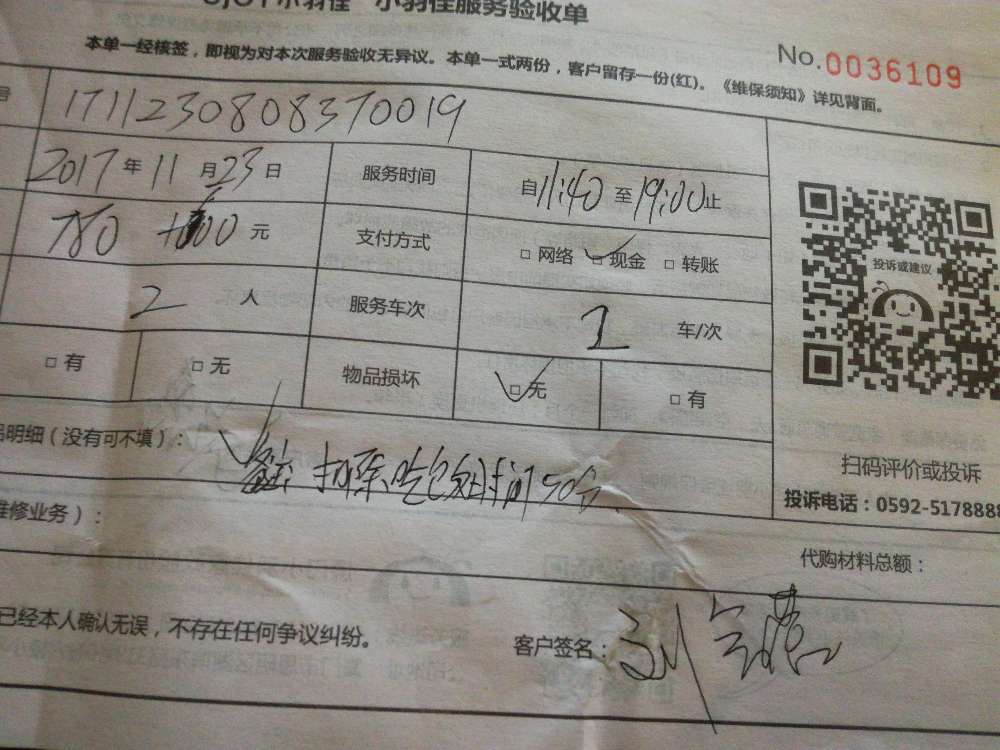 小羽佳 小羽佳服务验收单
No.0036109
本单一经核签，即视为对本次服务验收无异议。本单一式两份，客户留存一份(红)。《维保须知》详见背面。
号 1711230808370019
2017年11月23日 服务时间 自11:40至19:00止
780 元 支付方式 □网络 □现金 □转账
2人 服务车次 1车/次
□有 □无 物品损坏 □无 □有
投诉或建议
品明细（没有可不填）：
扣除吃饭时间50分
扫码评价或投诉
投诉电话：0592-5178888
维修业务）：
代购材料总额：
已经本人确认无误，不存在任何争议纠纷。 客户签名：刘